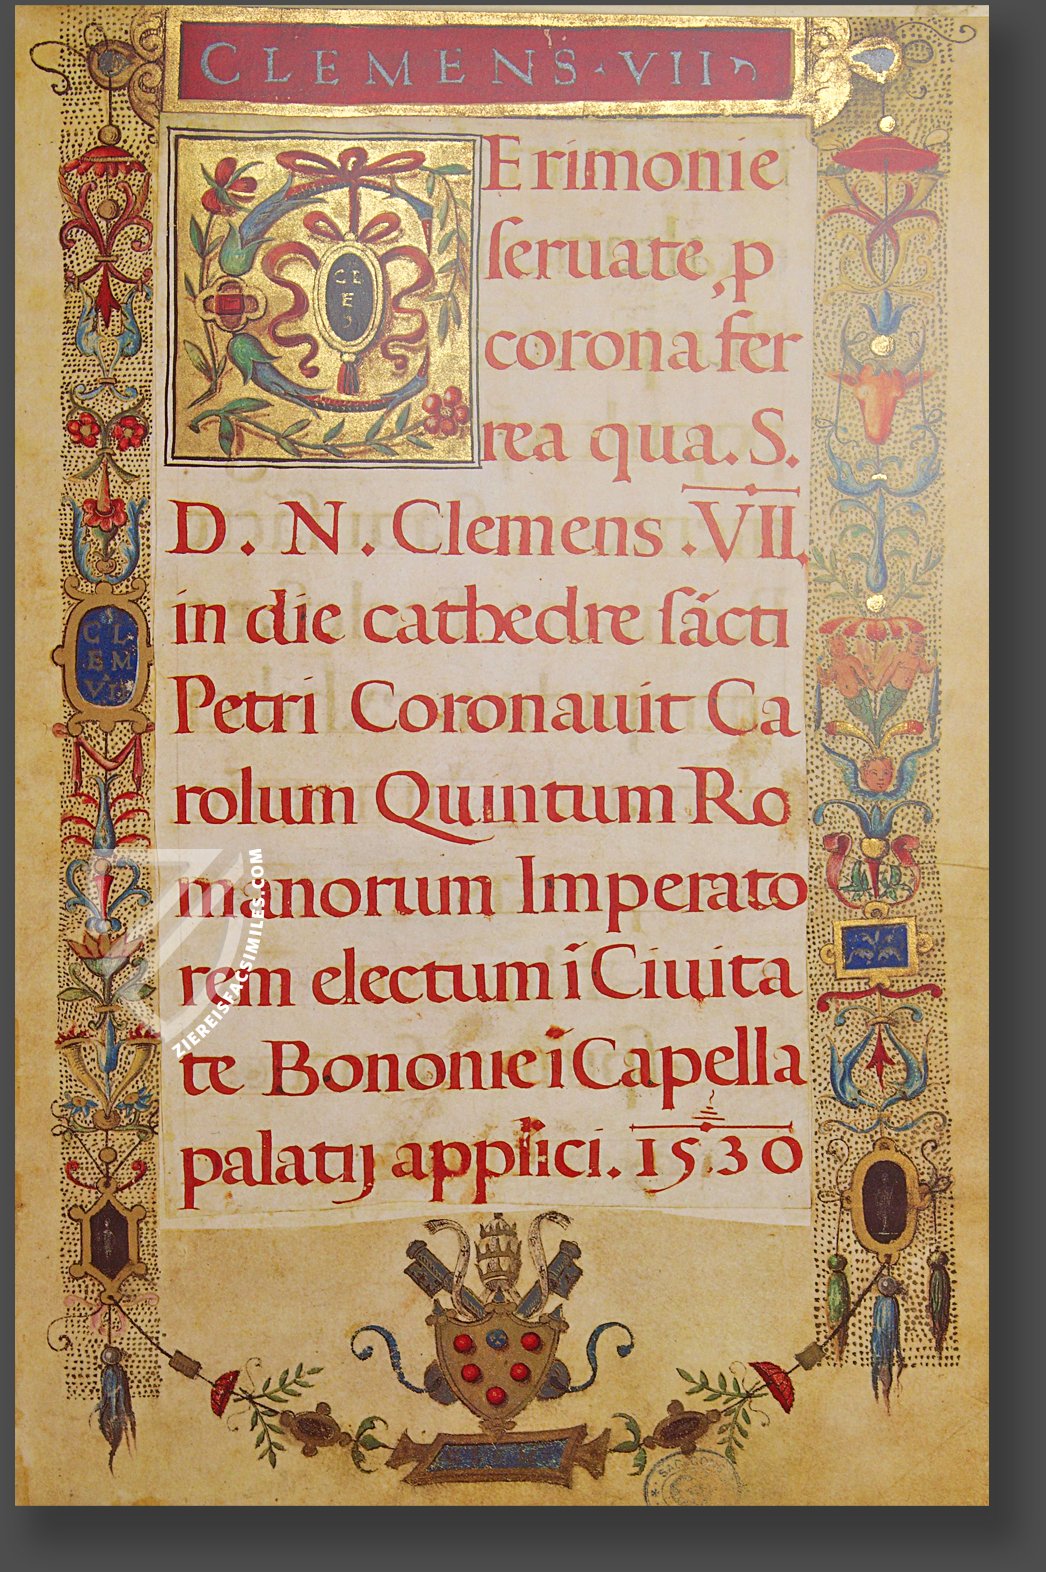 CLEMENS·VII
CErimonie
ſeruate, p
corona fer
rea qua. S.
D. N. Clemens .VII.
in die cathedre ſācti
Petri Coronauit Ca
rolum Quintum Ro
manorum Imperato
rem electum ī Ciuita
te Bononie ī Capella
palatij applici. 1530
CLE
E
S
CL
EM
VII
ZIEREISFACSIMILES.COM